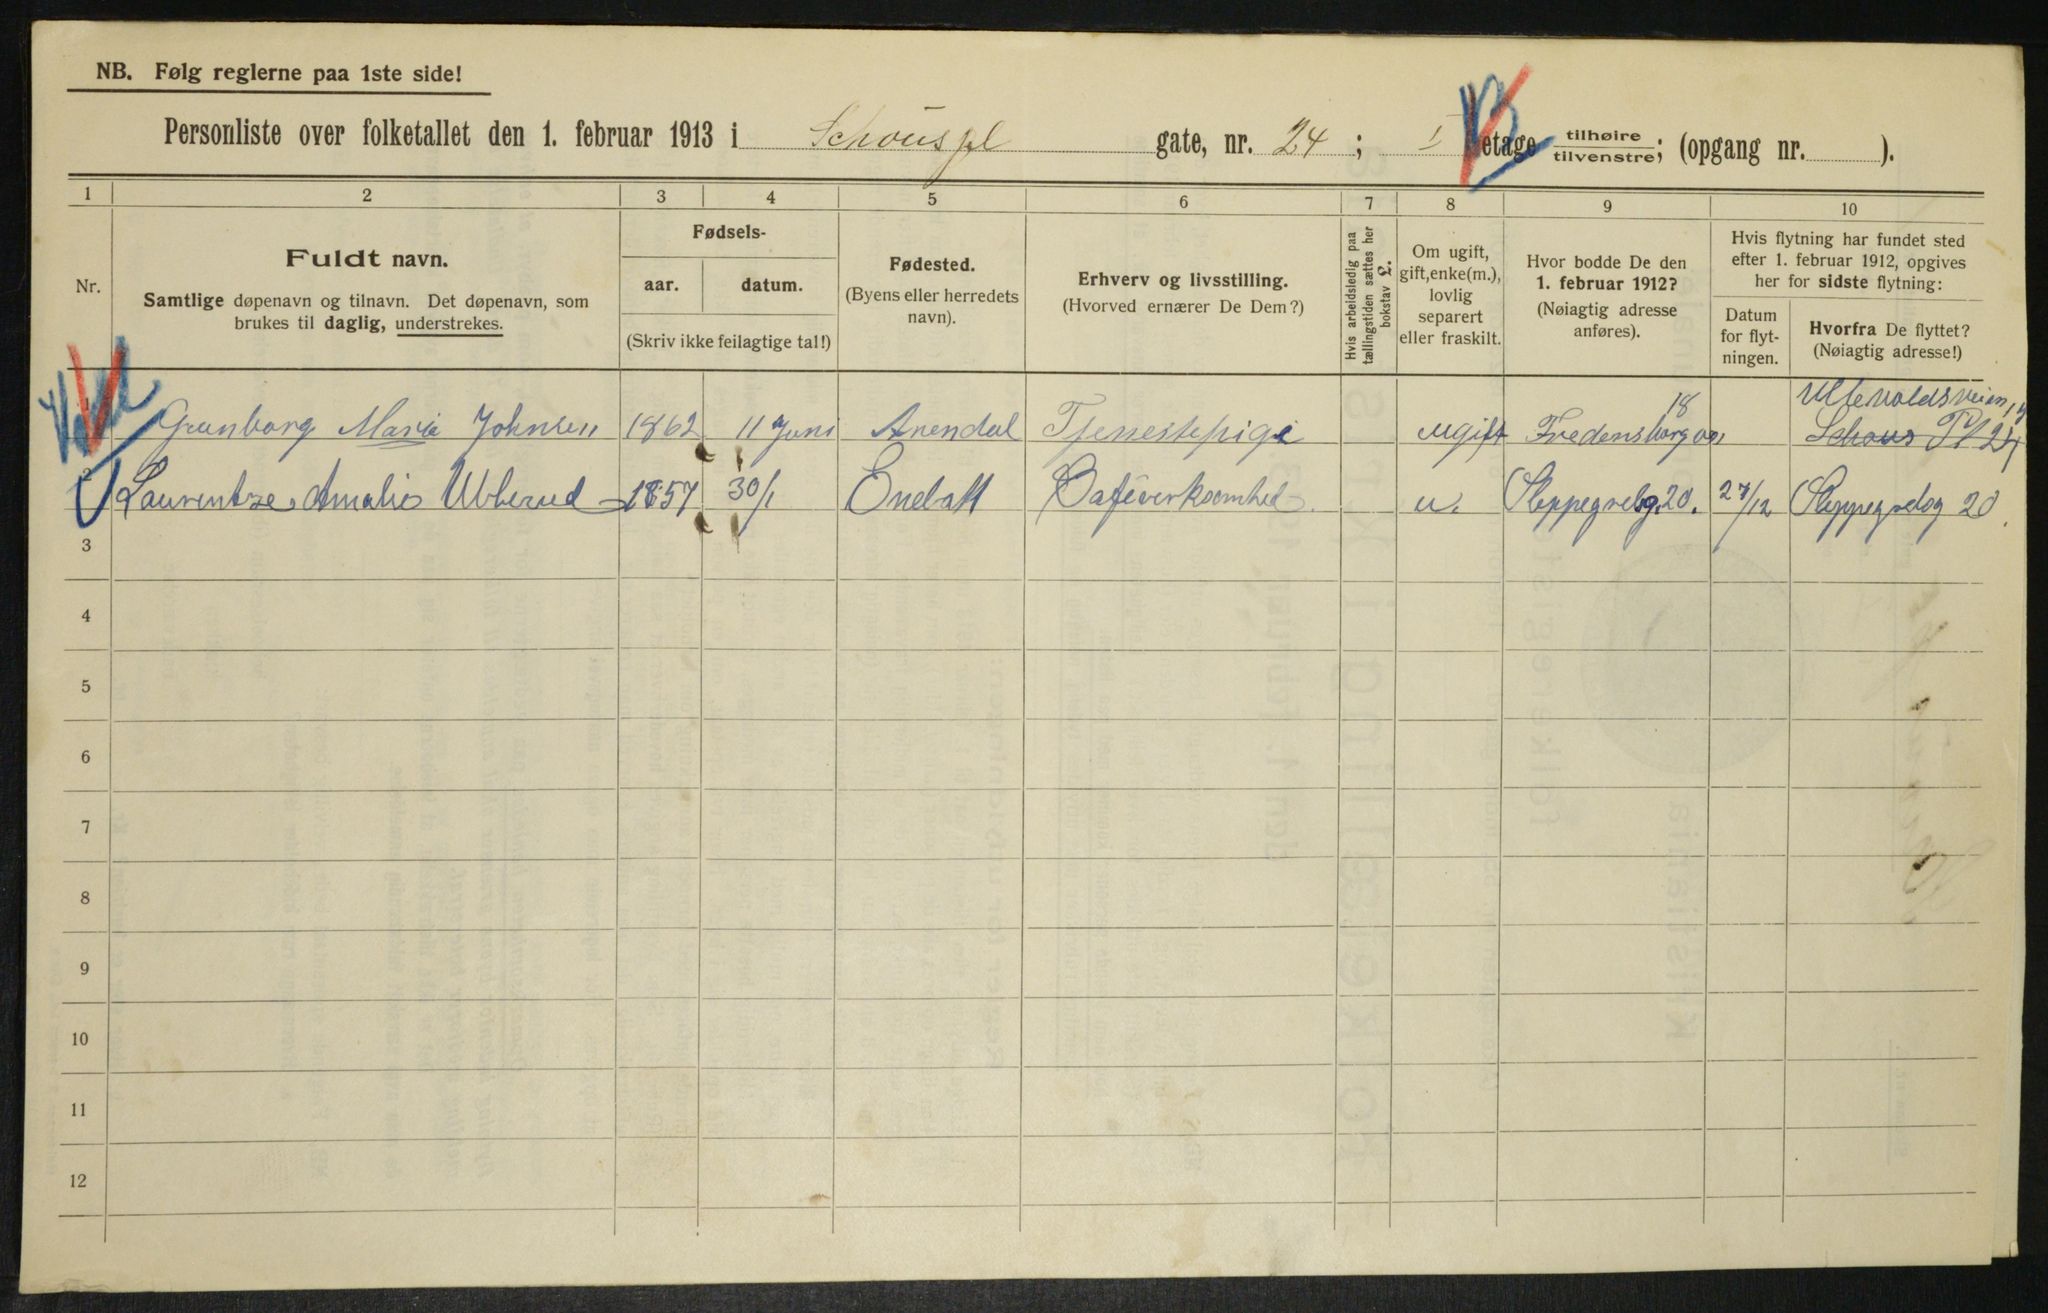 NB. Følg reglerne paa 1ste side!
Personliste over folketallet den 1. februar 1913 i Schous pl gate, nr. 24; I etage tilhøire tilvenstre; (opgang nr. ).
1 2 3 4 5 6 7 8 9 10
Nr.
Fuldt navn.
Samtlige døpenavn og tilnavn. Det døpenavn, som
brukes til daglig, understrekes.
Fødsels-
aar. datum.
(Skriv ikke feilagtige tal!)
Fødested.
(Byens eller herredets
navn).
Erhverv og livsstilling.
(Hvorved ernærer De Dem?)
Hvis arbeidsledig paa
tællingstiden sættes her
bokstav L.
Om ugift,
gift, enke(m.),
lovlig
separert
eller fraskilt.
Hvor bodde De den
1. februar 1912?
(Nøiagtig adresse
anføres).
Hvis flytning har fundet sted
efter 1. februar 1912, opgives
her for sidste flytning:
Datum
for flyt-
ningen.
Hvorfra De flyttet?
(Nøiagtig adresse!)
1 Gunborg Maria Johnsen 1862 11 Juni Arendal Tjenestepige ugift Fredensborgvei 18 Ullevoldsveien 17
Schous Pl 24
2 Laurentze Amalie Ulberud 1857 30/1 Enebakk Caféverksomhed. u. Steppegrelsg. 20. 27/12 Steppegrelsg 20.
3
4
5
6
7
8
9
10
11
12